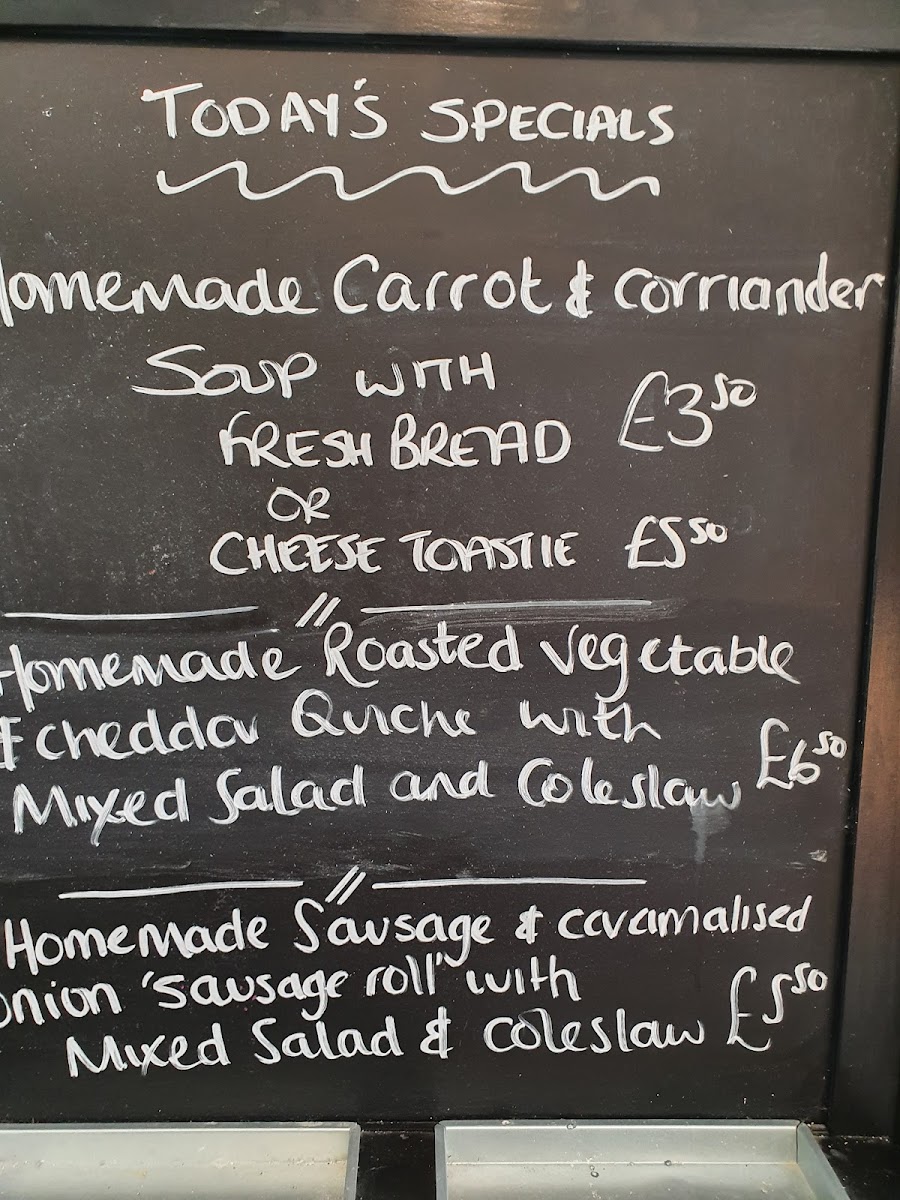 TODAY'S SPECIALS
Homemade Carrot & Corriander
SOUP WITH
FRESH BREAD £3.50
OR
CHEESE TOASTIE £5.50
Homemade Roasted Vegetable
& Cheddar Quiche with
Mixed Salad and Coleslaw £6.50
Homemade Sausage & caramalised
onion 'sausage roll' with
Mixed Salad & coleslaw £5.50